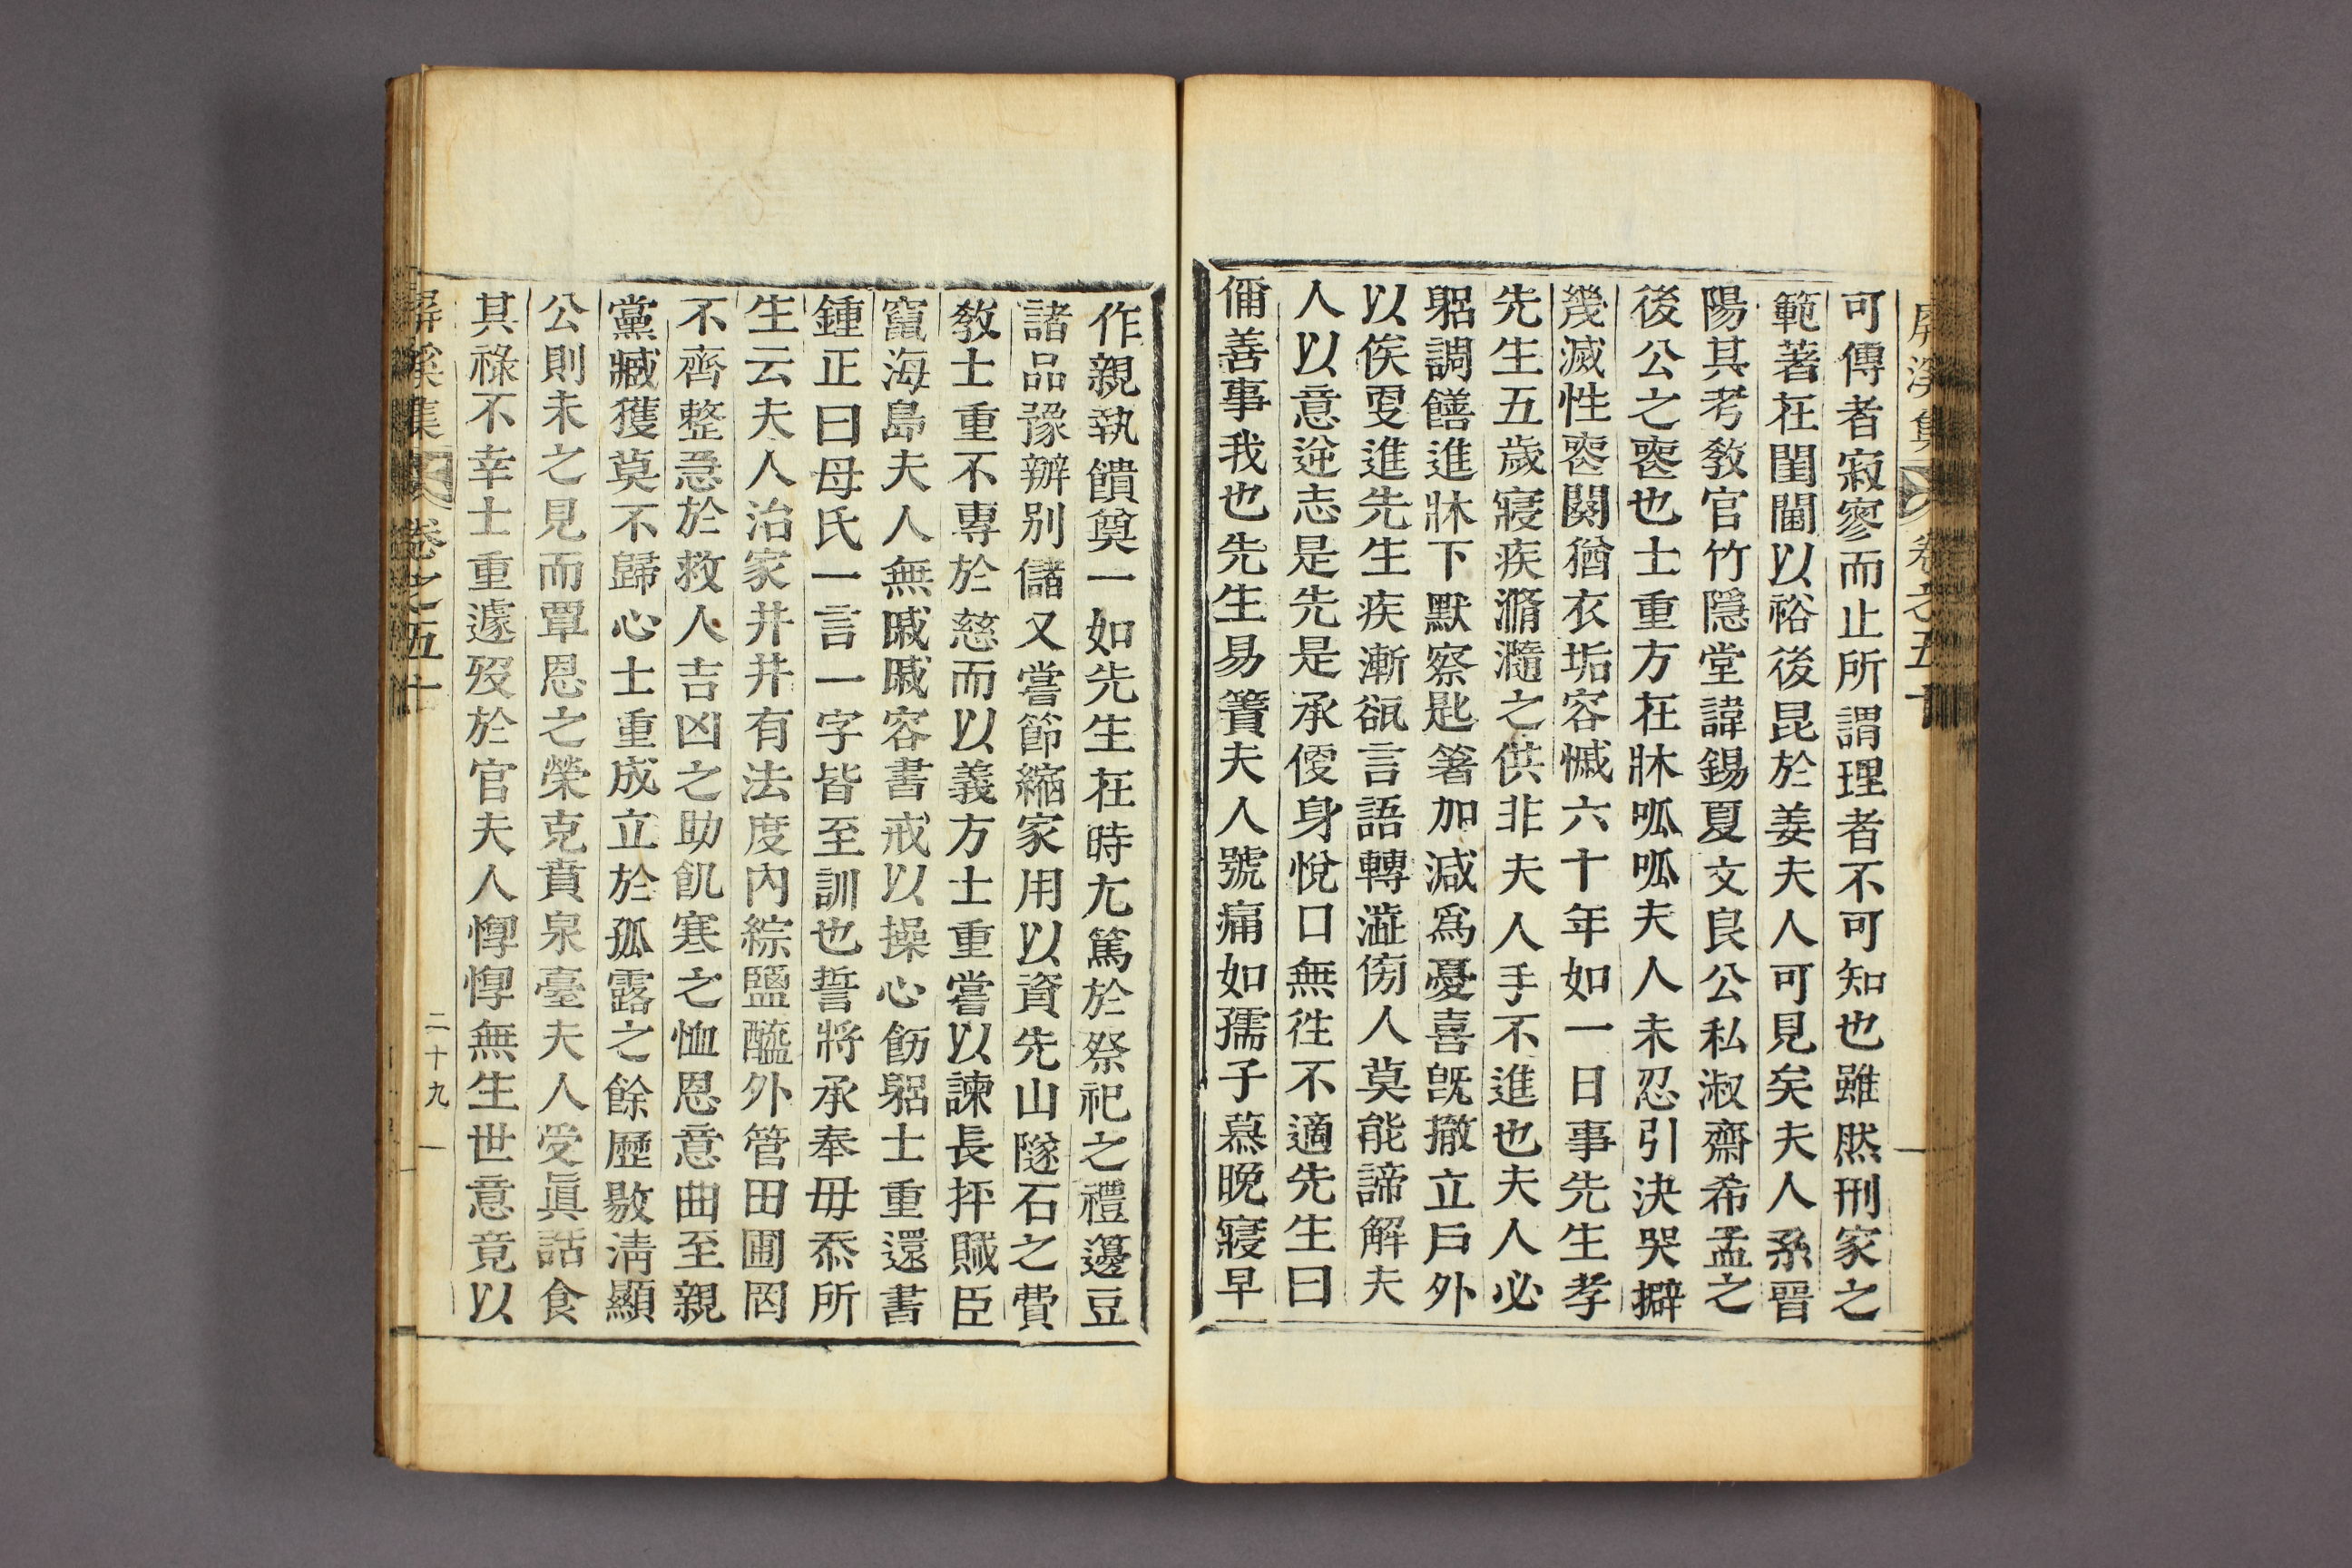 屛溪集 卷之五十
可傳者寂寥而止所謂理者不可知也雖然刑家之
範著在閨閫以裕後昆於姜夫人可見矣夫人系晉
陽其考敎官竹隱堂諱錫夏文良公私淑齋希孟之
後公之喪也士重方在牀呱呱夫人未忍引決哭擗
幾滅性喪闋猶衣垢容慽六十年如一日事先生孝
先生五歲寢疾滫瀡之供非夫人手不進也夫人必
躬調饍進牀下默察匙箸加減爲憂喜旣撤立戶外
以俟更進先生疾漸㼝言語轉澁傍人莫能諦解夫
人以意逆志是先是承便身悅口無往不適先生曰
僃善事我也先生易簀夫人號痛如孺子慕晩寢早
作親執饋奠一如先生在時尤篤於祭祀之禮籩豆
諸品豫辦别儲又嘗節縮家用以資先山隧石之費
敎士重不專於慈而以義方士重嘗以諫長抨贓臣
竄海島夫人無戚戚容書戒以操心飭躬士重還書
鍾正曰母氏一言一字皆至訓也誓將承奉毋忝所
生云夫人治家井井有法度內綜鹽醯外管田圃罔
不齊整急於救人吉凶之助飢寒之恤恩意曲至親
黨臧獲莫不歸心士重成立於孤露之餘歷敭淸顯
公則未之見而覃恩之榮克賁泉臺夫人受眞誥食
其祿不幸士重遽歿於官夫人惸惸無生世意竟以
屛溪集 卷之五十 二十九